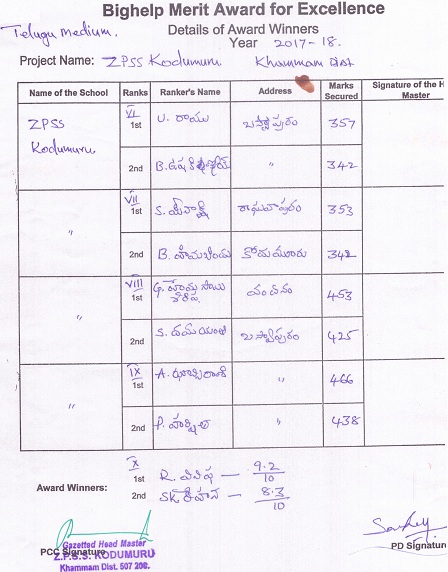 Bighelp Merit Award for Excellence
Telugu medium.
Details of Award Winners
Year 2017-18.
Project Name: ZPSS Kodumuru Khammam Dist
Name of the School Ranks Ranker's Name Address Marks Secured Signature of the H Master
ZPSS Kodumuru VI 1st U. రాము బస్వాపురం 357
2nd B. ఉష " 342
" VII 1st S. మీనాక్షి రాఘవాపురం 353
2nd B. హిమబిందు కోదుమూరు 342
" VIII 1st G. వందనం 453
2nd S. దమయంతి బస్వాపురం 425
" IX 1st A. ఝాన్సిరాణి " 466
2nd P. హర్షిత " 438
Award Winners:
X 1st R. — 9.2/10
2nd SK. — 8.3/10
PCC Signature
Gazetted Head Master
Z.P.S.S. KODUMURU
Khammam Dist. 507 208.
PD Signature